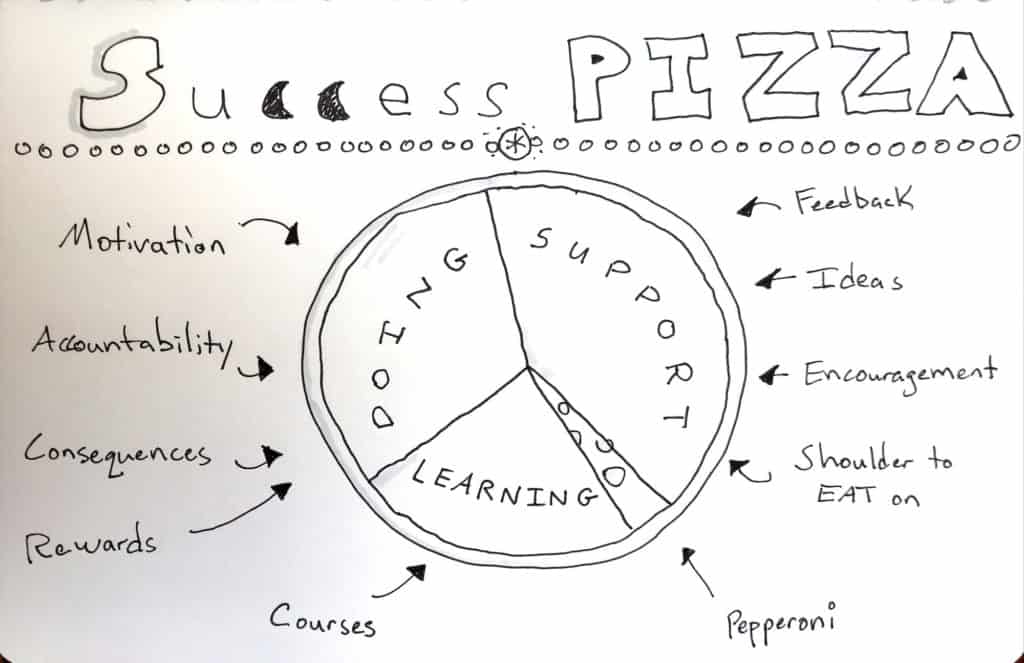 Success PIZZA
Motivation
Accountability
Consequences
Rewards
Courses
DOING
SUPPORT
LEARNING
Feedback
Ideas
Encouragement
Shoulder to
EAT on
Pepperoni